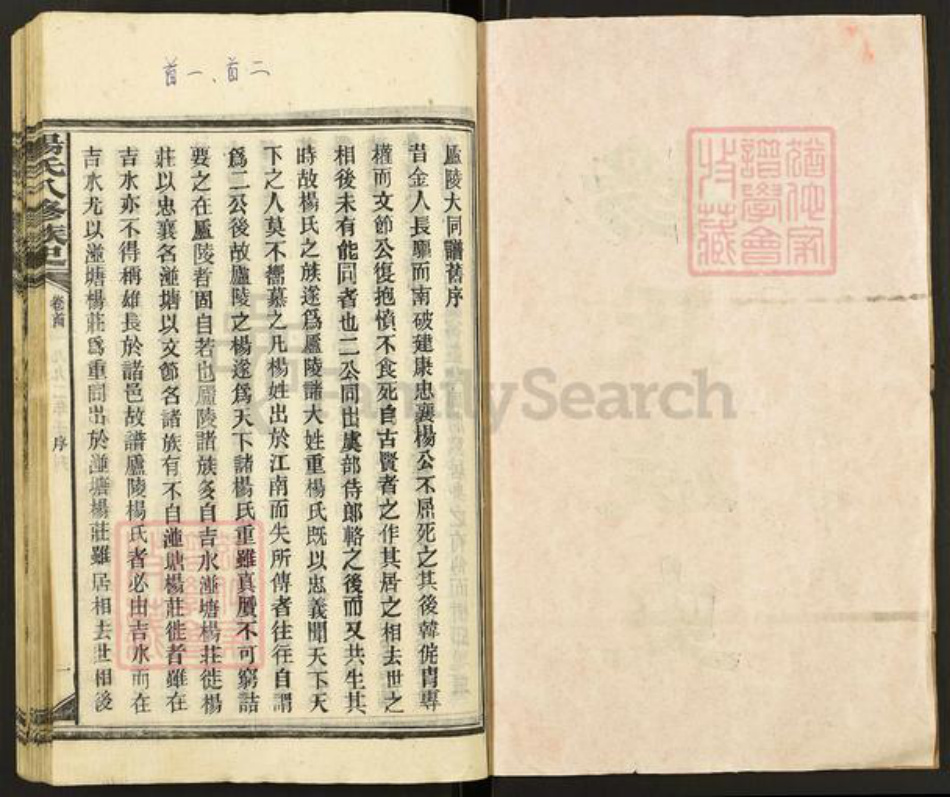 首一、首二
廬陵大同譜舊序
昔金人長驅而南破建康忠襄楊公不屈死之其後韓侂胄專
權而文節公復抱憤不食死自古賢者之作其居之相去世之
相後未有能同者也二公同出虞部侍郎輅之後而又共生其
時故楊氏之族遂爲廬陵諸大姓重楊氏既以忠義聞天下天
下之人莫不嚮慕之凡楊姓出於江南而失所傳者往往自謂
爲二公後故廬陵之楊遂爲天下諸楊氏重雖真贋不可窮詰
要之在廬陵者固自若也廬陵諸族多自吉水湴塘楊莊徙楊
莊以忠襄名湴塘以文節名諸族有不自湴塘楊莊徙者雖在
吉水亦不得稱雄長於諸邑故譜廬陵楊氏者必由吉水而在
吉水尤以湴塘楊莊爲重同出於湴塘楊莊雖居相去世相後
楊氏八修族史
卷首
序
一
猶他家
譜學會
收藏
FamilySearch